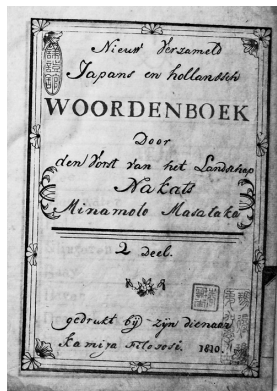 Nieuw Verzameld
Japans en hollandsch
WOORDENBOEK
Door
den Vorst van het Landschap
Nakats
Minamoto Masataka
2 deel.
gedrukt bij zijn dienaar
Kamija Filojosi. 1810.